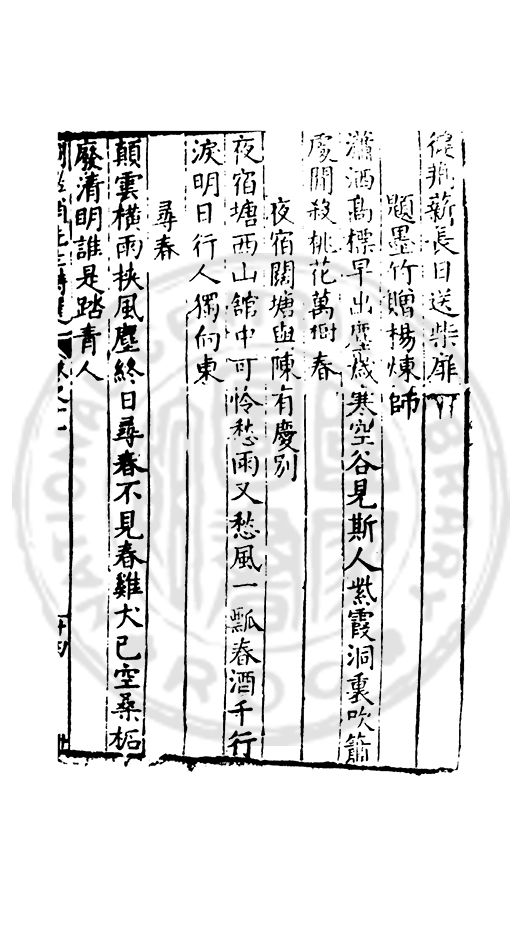 薪長日送柴扉
題墨竹贈楊煉師
瀟洒高標早出塵歲寒空谷見斯人紫霞洞裏吹簫
處開殺桃花萬樹春
夜宿闊塘與陳有慶別
夜宿塘西山館中可怜愁雨又愁風一瓢春酒千行
淚明日行人獨向東
尋春
顛雲橫雨挾風塵終日尋春不見春雞犬已空桑柘
廢清明誰是踏青人